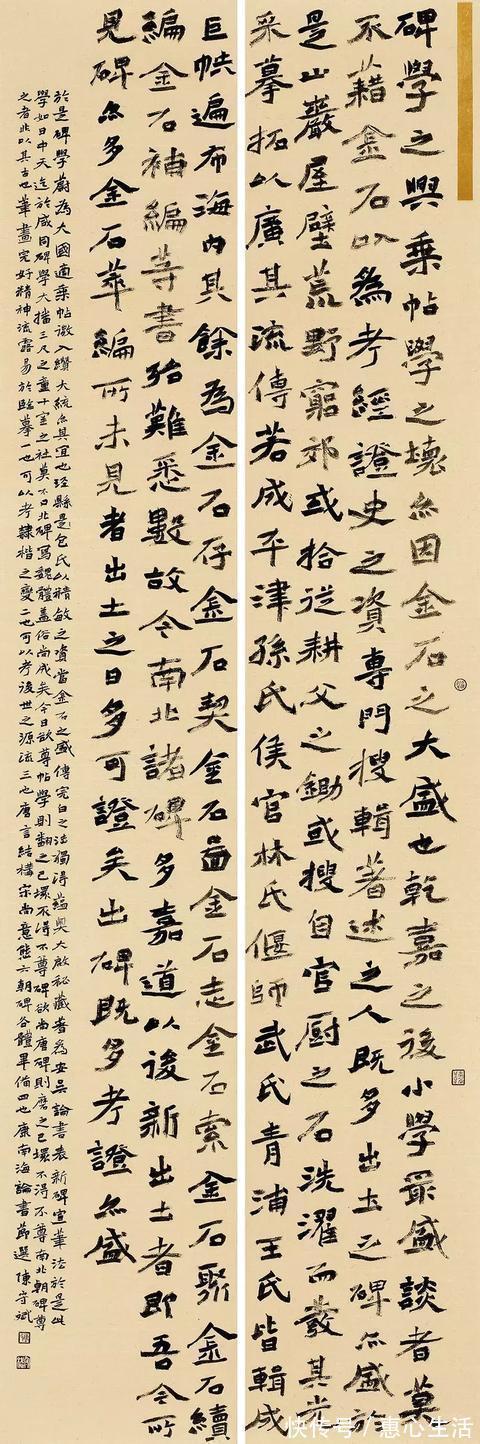 碑學之興乘帖學之壞亦因金石之大盛也乾嘉之後小學最盛談者莫
不藉金石以為考經證史之資專門搜輯著述之人既多出土之碑亦盛於
是山巖屋壁荒野窮郊或拾從耕父之鋤或搜自官厨之石洗濯而發其光
采摹拓以廣其流傳若成平津孫氏侯官林氏偃師武氏青浦王氏皆輯成
巨帙遍布海內其餘為金石存金石契金石啚金石志金石索金石聚金石續
編金石補編等書殆難悉數故今南北諸碑多嘉道以後新出土者即吾今所
見碑亦多金石萃編所未見者出土之日多可證矣出碑既多考證亦盛
於是碑學蔚為大國適乘帖微入纘大統亦其宜也涇縣是包氏以精敏之資當金石之盛傳完白之法獨得蘊奧大啟秘藏著為安吳論書表新碑宣筆法於是此
學如日中天迄於咸同碑學大播三尺之童十室之社莫不口北碑寫魏體蓋俗尚成矣今日欲尊帖學則翻之已壞不得不尊碑欲尚唐碑則磨之已壞不得不尊南北朝碑尊
之者非以其古也筆畫完好精神流露易於臨摹一也可以考隸楷之變二也可以考後世之源流三也唐言結構宋尚意態六朝碑各體畢備四也康南海論書節選陳守斌
快传号／惠心生活